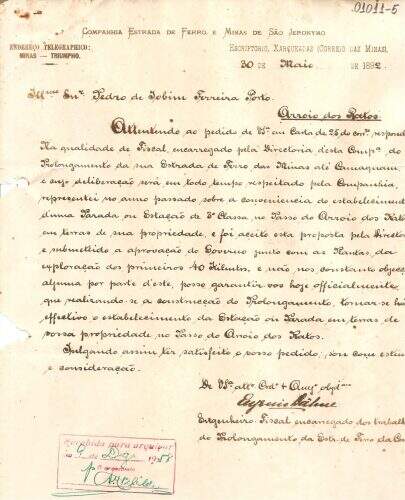 01011-5
COMPANHIA ESTRADA DE FERRO E MINAS DE SÃO JERONYMO
ENDEREÇO TELEGRAPHICO:
MINAS — TRIUMPHO.
ESCRIPTORIO, XARQUEADAS (CORREIO DAS MINAS,
30 DE Maio DE 1892
Illmo Snr Pedro de Tobim Ferreira Porto.
Arroio dos Ratos
Attentendo ao pedido de VSa em Carta de 26 do corr, respond
Na qualidade de Fiscal, encarregado pela Directoria desta Compa do
Prolongamento da sua Estrada de Ferro das Minas até Camaquam,
e cujo deliberação será em todo tempo respeitado pela Companhia,
representei no anno passado sobre a conveniencia do estabeleciment
d'uma Parada ou Estação de 3a Classa, no Passo do Arroio dos Rato
em terras de sua propriedade, e foi aceito esta proposta pela Director
e submettido a aprovação do Governo junto com as Plantas, da
exploração dos primeiros 40 Kilomts, e não nos constando objec
alguma por parte d'este, posso garantir vos hoje officialmente,
que realizando-se a construcção do Prolongamento, tornar-se ha
effectivo o estabelecimento da Estação ou Parada em terras de
vossa propriedade no Passo do Arroio dos Ratos.
Julgando assim ter satisfeito o vosso pedido, sou com estim
e consideração.
De VSa atto Crdo &
Eugenio Dähne
Engenheiro Fiscal encarregado dos trabalh
do Prolongamento da Estr. de Ferro da Co
Recebida para arquivar
9 de 1958